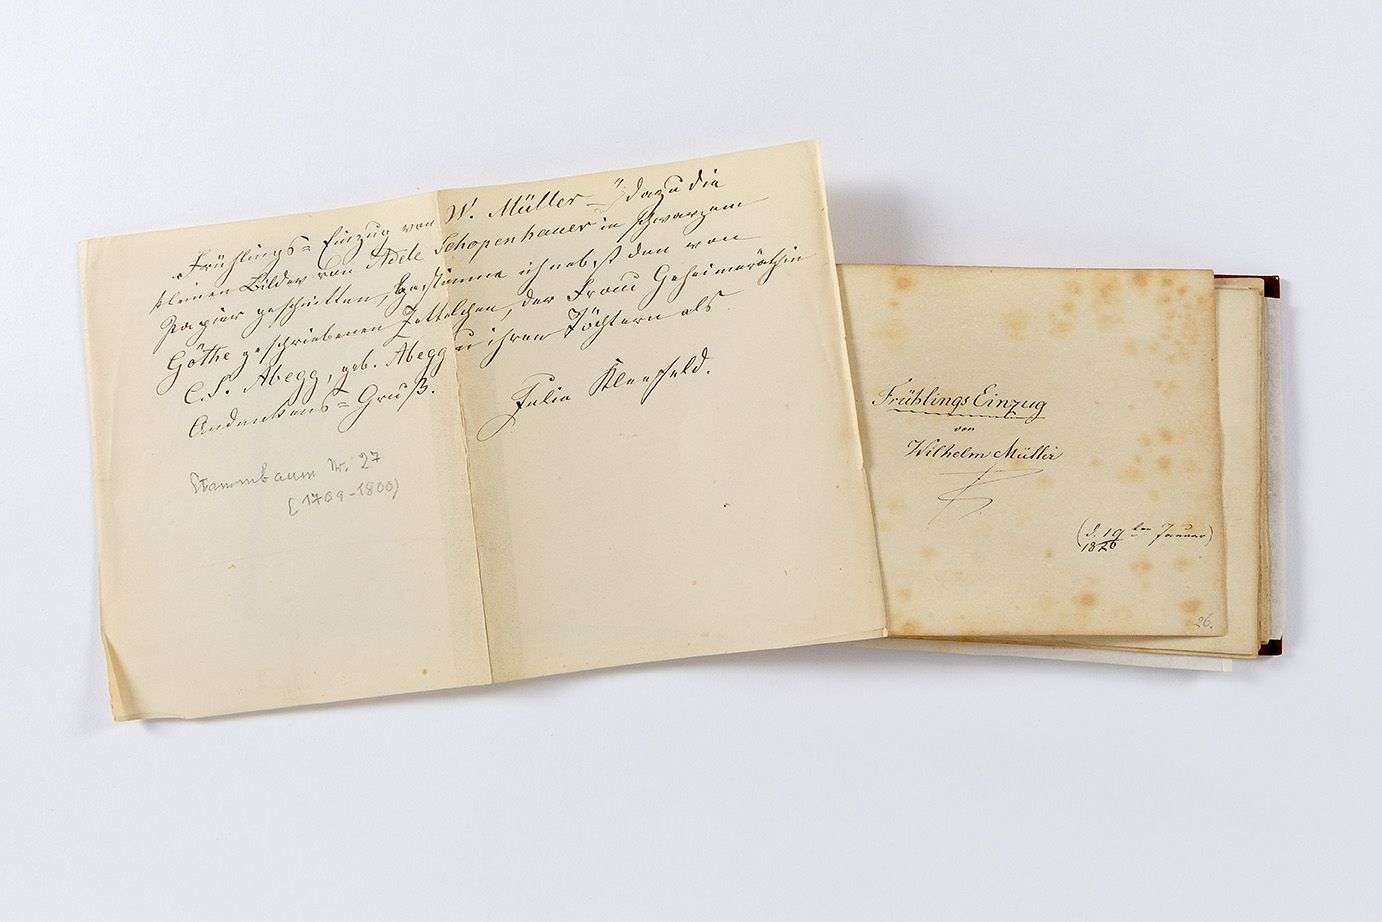 „Frühlings=Einzug von W. Müller –" dazu die
kleinen Bilder von Adele Schopenhauer in schwarzem
Papier geschnitten, bestimme ich nebst den von
Göthe geschriebenen Zettelchen, der Frau Geheimeräthin
C. S. Abegg, geb. Abegg u ihren Töchtern als
Andenkens=Gruß.
Julie Kleefeld.
Stammbaum Nr. 27
(1709-1800)
FrühlingsEinzug
von
Wilhelm Müller
(d. 19ten Januar)
1826
26.